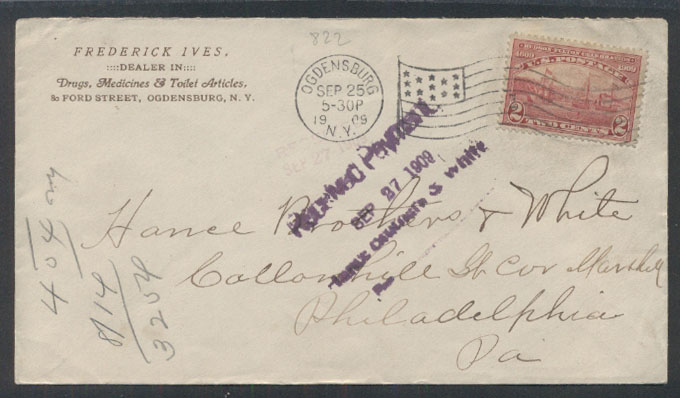 FREDERICK IVES,
::::DEALER IN::::
Drugs, Medicines & Toilet Articles,
80 FORD STREET, OGDENSBURG, N. Y.
822
OGDENSBURG
SEP 25
5-30P
19 09
N.Y.
HUDSON-FULTON CELEBRATION
1609 1909
U.S. POSTAGE
2 TWO CENTS 2
SEP 27 1909
& White
Hance Brothers & White
Callowhill St Cor Marshall
Philadelphia
Pa
404
8/14
3204